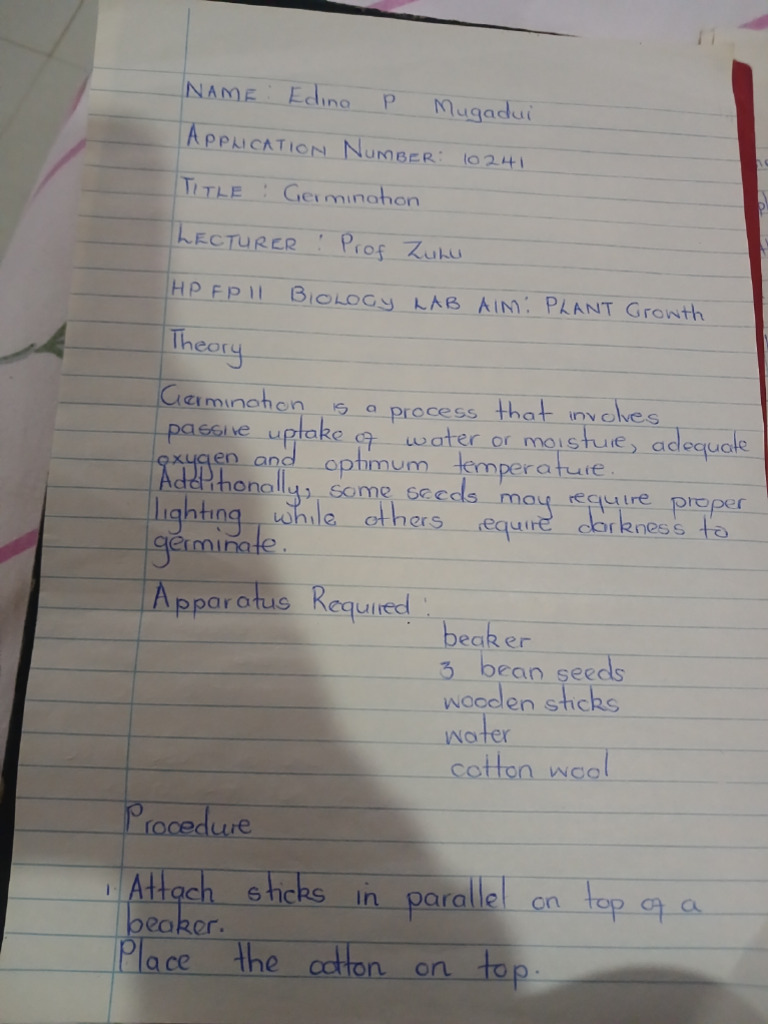 NAME: Edina P Mugadui
APPLICATION NUMBER: 10241
TITLE : Germination
LECTURER : Prof ZULU
HPFP11 BIOLOGY LAB AIM: PLANT Growth
Theory
Germination is a process that involves
passive uptake of water or moisture, adequate
oxygen and optimum temperature.
Additionally, some seeds may require proper
lighting while others require darkness to
germinate.
Apparatus Required :
beaker
3 bean seeds
wooden sticks
water
cotton wool
Procedure
1. Attach sticks in parallel on top of a
beaker.
Place the cotton on top.